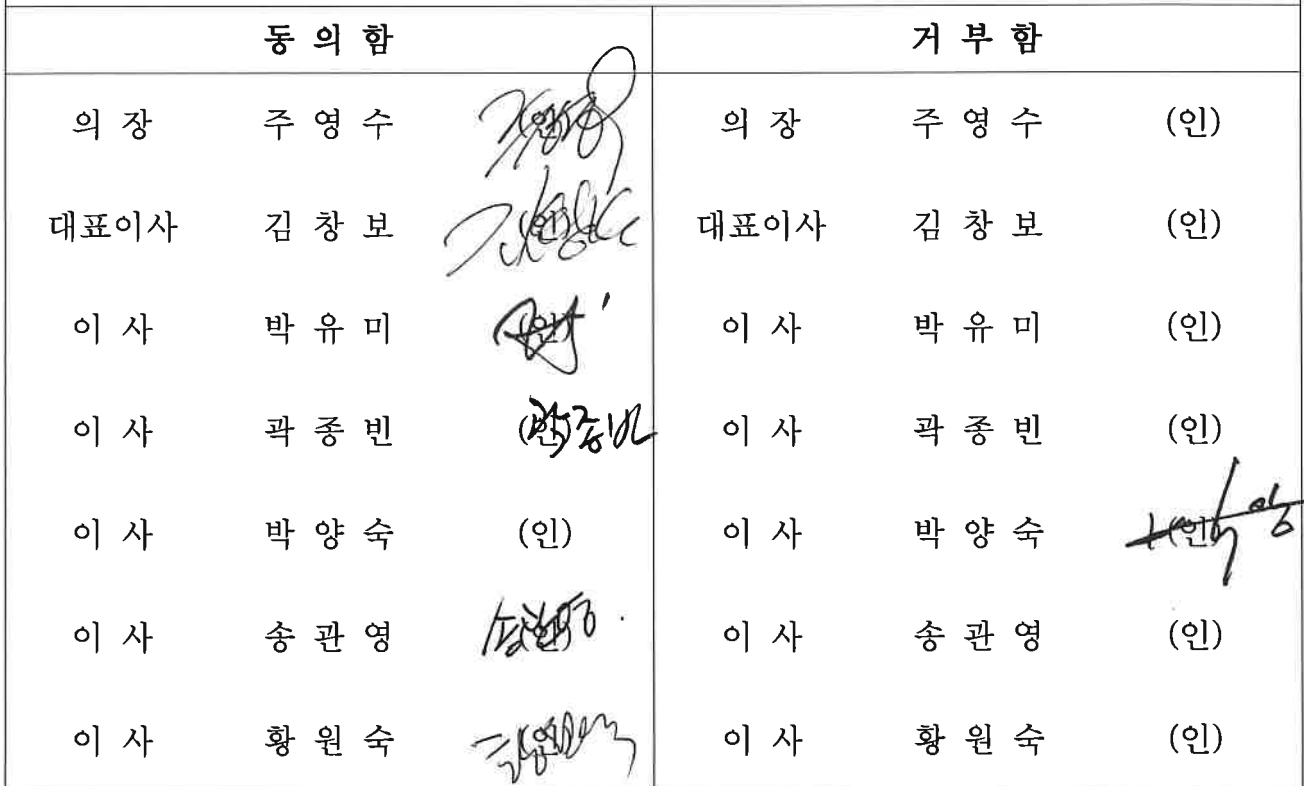 동 의 함 거 부 함
의 장 주 영 수 (인) 의 장 주 영 수 (인)
대표이사 김 창 보 (인) 대표이사 김 창 보 (인)
이 사 박 유 미 (인) 이 사 박 유 미 (인)
이 사 곽 종 빈 (인) 곽종빈 이 사 곽 종 빈 (인)
이 사 박 양 숙 (인) 이 사 박 양 숙 (인)
이 사 송 관 영 (인) 이 사 송 관 영 (인)
이 사 황 원 숙 (인) 이 사 황 원 숙 (인)